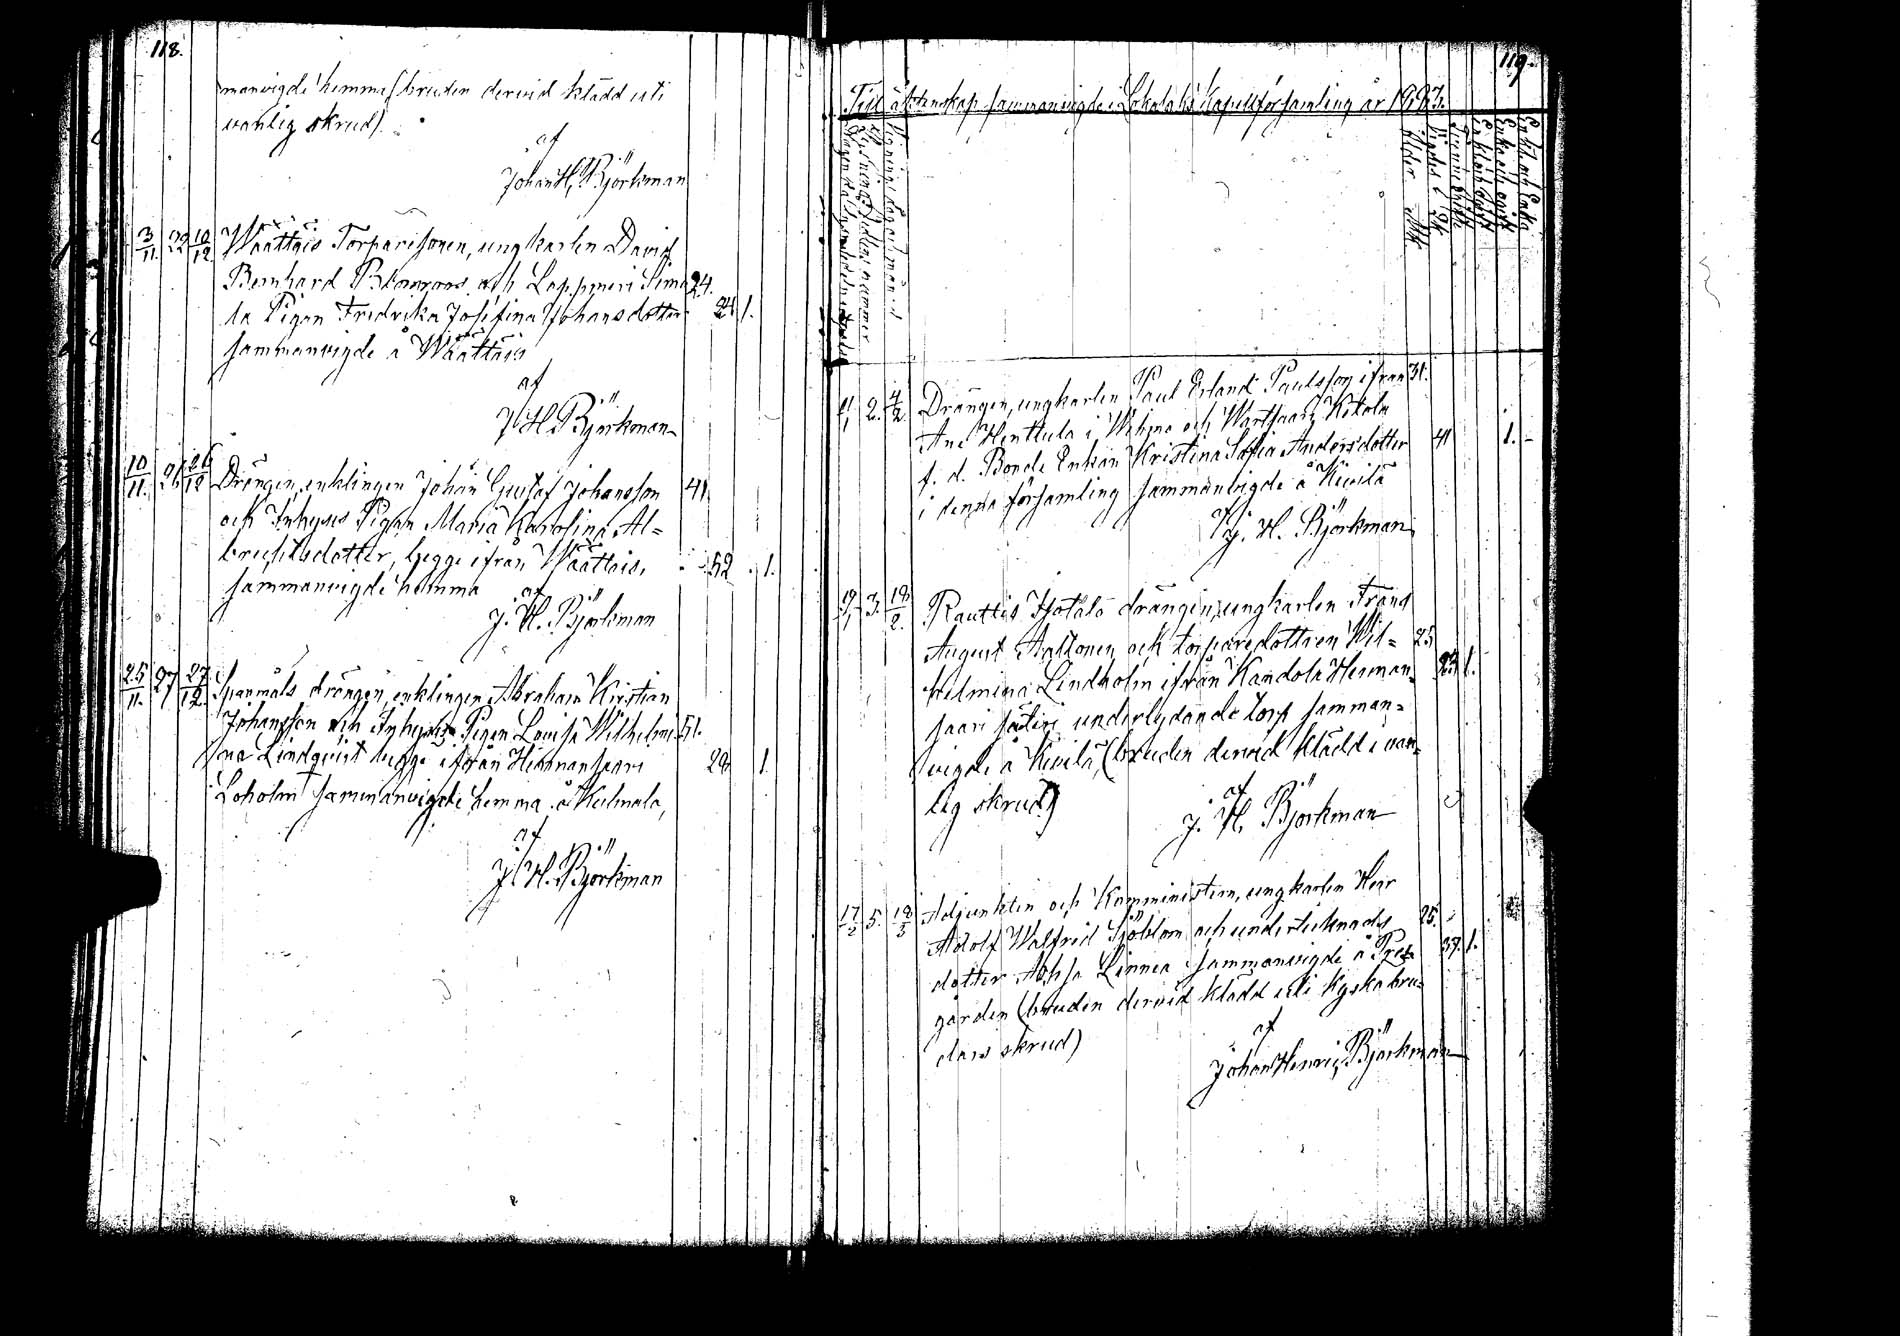 118.
manvigde hemma (bruden dervid klädd uti
vanlig skrud).
af
Johan H. Björkman
3/11. 22 10/12 Wäättäis Torparesonen, ungkarlen David
Bernhard och Lappmeri Simo 24.
la Pigan Fredrika Josefina Johansdotter 24 1.
sammanvigde å Wäättäis
af
J. H. Björkman
10/11. 26 26/12 Drängen, enklingen Johan Gustaf Johansson 41
och Inhyses Pigan Maria Karolina Al=
brechtsdotter, begge ifrån Wäättäis, 52 1.
sammanvigde hemma
af
J. H. Björkman
25/11. 27 27/12. Spanmåls drängen, enklingen Abraham Kristian
Johansson och Inhyses Pigan Lovisa Wilhelmi- 51.
na Lindqvist begge ifrån Hermansaari 28 1
Loholm sammanvigde hemma å Kulmala,
af
J. H. Björkman
119.
Till äktenskap sammanvigde i Lokalaks Kapellförsamling år 1883.
Ålder
2. 4/2 Drängen, ungkarlen Paul Erland Paulsson ifrån 31.
Ane Henttula i Wehma och Wartsaari Kikola
f. d. Bonde Enkan Kristina Sofia Andersdotter 41 1.
i denna församling sammanvigde å Kivilä
af
J. H. Björkman
19/1 3. 18/2. Rauttis Isotalo drängen, ungkarlen Frans
August Aaltonen och torparedottren Wil= 25
helmina Lindholm ifrån Kandola Herman= 1.
saari säteri underlydande torp samman=
vigde å Kivilä, (bruden dervid klädd i van=
lig skrud)
af
J. H. Björkman
17/2 5. 18/3 Adjunkten och Komministern, ungkarlen Herr
Adolf Walfrid Sjöblom och undertecknads 25.
dotter Linnea sammanvigde å Prest 37. 1.
gården (bruden dervid klädd uti kyska bru=
dars skrud)
af
Johan Henric Björkman